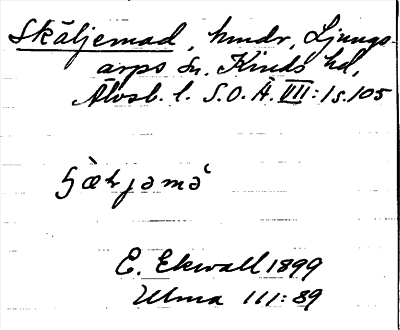 Skäljemad, hmdr, Ljungs-
arps sn. Kinds hd,
Älvsb. l. S.O.Ä. VII:1 s.105
E. Ekwall 1899
Ulma 111:89